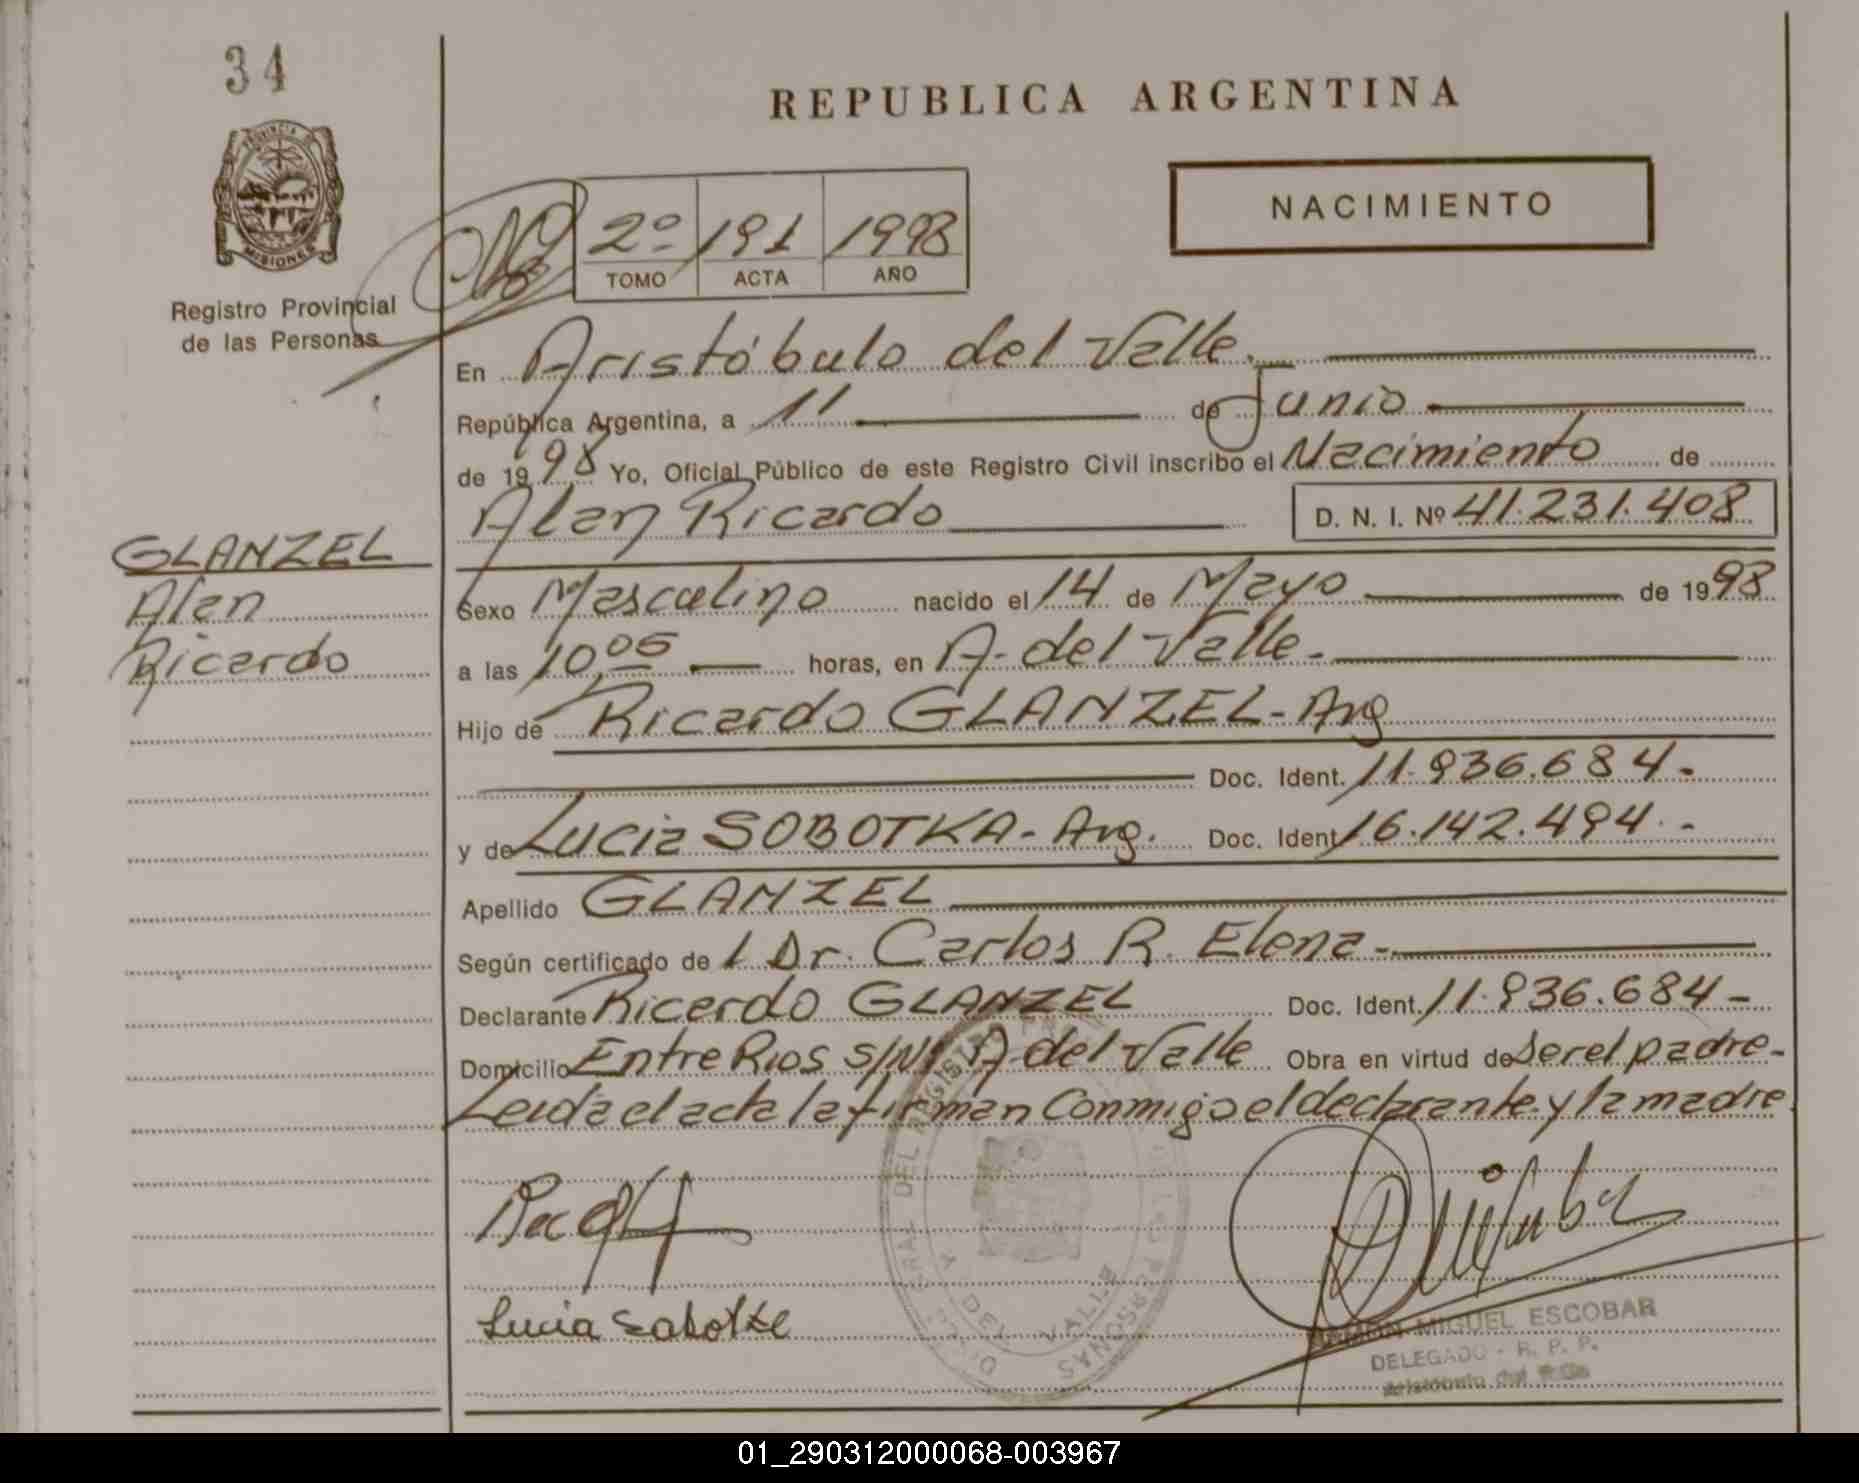 34
PROVINCIA DE
MISIONES
Registro Provincial
de las Personas
REPUBLICA ARGENTINA
NACIMIENTO
2º 191 1998
TOMO ACTA AÑO
En Aristóbulo del Valle.
República Argentina, a 11 de Junio
de 1998 Yo, Oficial Público de este Registro Civil inscribo el Nacimiento de
Alan Ricardo D. N. I. Nº 41.231.408
GLANZEL
Alan
Ricardo
Sexo Masculino nacido el 14 de Mayo de 1998
a las 10,05 horas, en A. del Valle.
Hijo de Ricardo GLANZEL - Arg
Doc. Ident. 11.936.684-
y de Lucia SOBOTKA - Arg. Doc. Ident. 16.142.494.-
Apellido GLANZEL
Según certificado de l Dr. Carlos R. Elena-
Declarante Ricardo GLANZEL Doc. Ident. 11.936.684-
Domicilio Entre Rios S/Nº A. del Valle Obra en virtud de ser el padre-
Leida el acta la firman Conmigo el declarante y la madre.
Lucia Sabotke
RAMON MIGUEL ESCOBAR
DELEGADO - R. P. P.
01_290312000068-003967